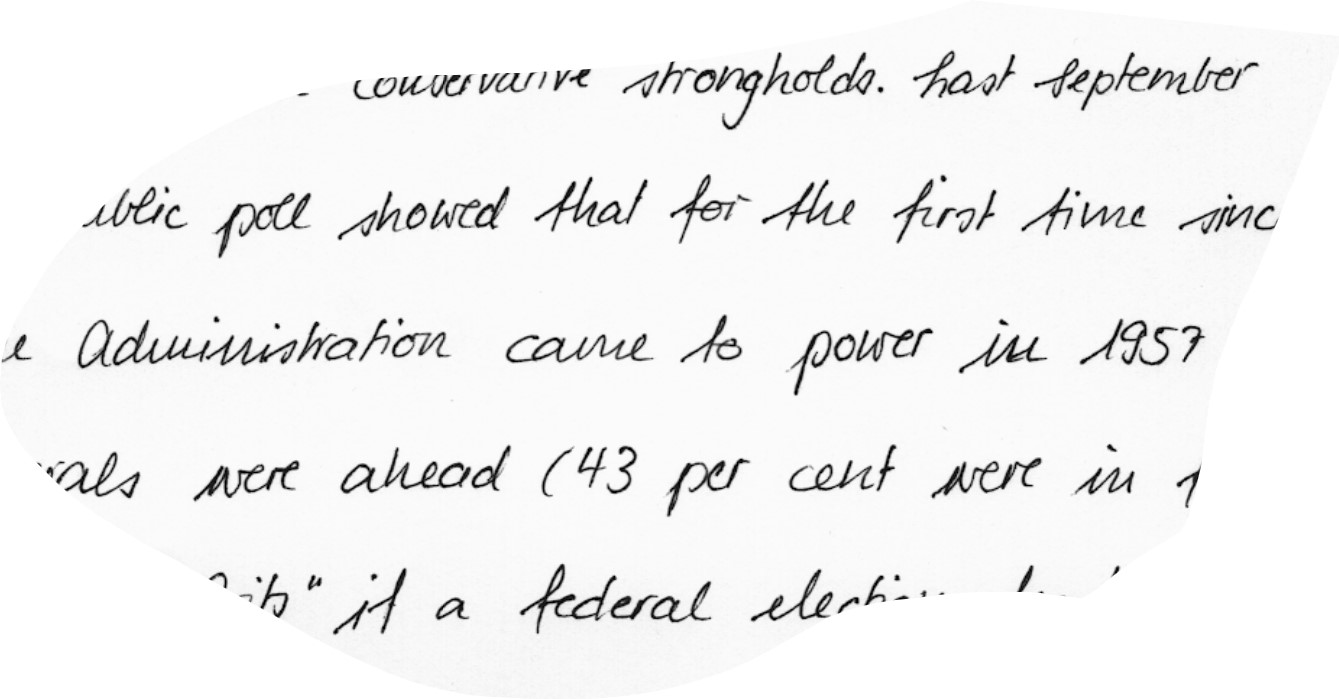 conservative strongholds. Last September
ublic poll showed that for the first time sinc
e Administration came to power in 1957
rals were ahead (43 per cent were in
" if a federal election